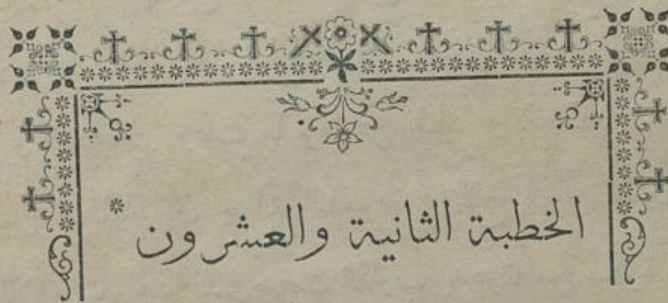 الخطبة الثانية والعشرون *